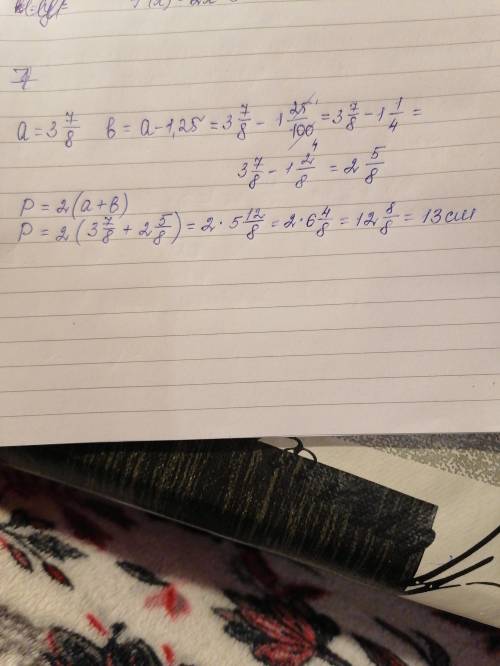 7
a = 3 7/8 b = a - 1,25 = 3 7/8 - 1 25/100 = 3 7/8 - 1 1/4 =
3 7/8 - 1 2/8 = 2 5/8
P = 2(a+b)
P = 2(3 7/8 + 2 5/8) = 2 · 5 12/8 = 2 · 6 4/8 = 12 8/8 = 13 см